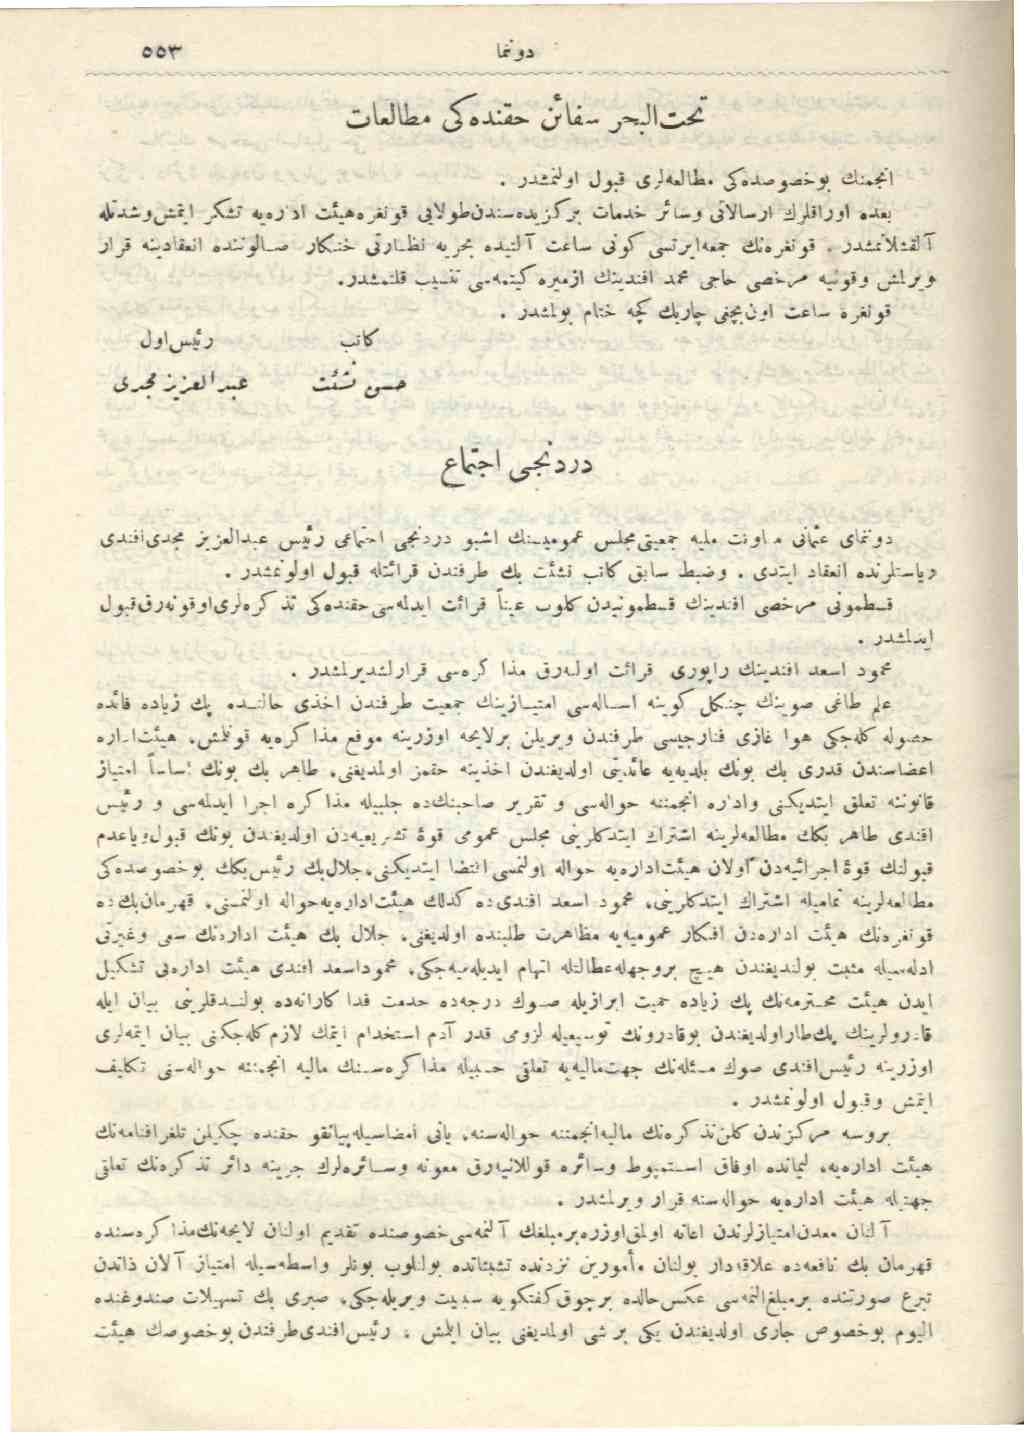 دونما ٥٥٣
تحت البحر سفائن حقنده‌كی مطالعات
انجمنك بوخصوصده‌كی مطالعه‌لری قبول اولنمشدر .
بعده اوراقلرك ارسالاتی وسائر خدمات برگزیده‌سندن‌طولایی قونغره‌هیئت اداره‌یه تشكر ایتمش‌وشدتله
آلقشلانمشدر . قونغره‌نك جمعه‌ایرتسی كونی ساعت آلتیده بحریه نظارتی خنكار صالوننده انعقادینه قرار
ویرلمش وقونیه مرخصی حاجی محمد افندینك ازمیره كیتمه‌سی تنسیب قلنمشدر.
قونغره ساعت اون‌بچغی چاریك كچه ختام بولمشدر .
كاتب رئیس‌اول
حسن نشئت عبدالعزیز مجدی
دردنجی اجتماع
دونمای عثمانی معاونت ملیه جمعیتی‌مجلس عمومیسنك اشبو دردنجی اجتماعی رئیس عبدالعزیز مجدی‌افندی
ریاستلرنده انعقاد ایتدی . وضبط سابق كاتب نشئت بك طرفندن قرائتله قبول اولونمشدر .
قسطمونی مرخصی افندینك قسطمونیدن كلوب عیناً قرائت ایدلمه‌سی‌حقنده‌كی تذكره‌لری‌اوقونه‌رق‌قبول
ایدلمشدر .
محمود اسعد افندینك راپوری قرائت اولنه‌رق مذاكره‌سی قرارلشدیرلمشدر .
علم طاغی صوینك چنكل كوینه اساله‌سی امتیازینك جمعیت طرفندن اخذی حالنده پك زیاده فائده
حصوله كله‌جكی هوا غازی فنارجیسی طرفندن ویریلن برلایحه اوزرینه موقع مذاكره‌یه قونلمش، هیئت‌اداره
اعضاسندن قدری بك بونك بلدیه‌یه عائدیتی اولدیغندن اخذینه حقمز اولمدیغنی، طاهر بك بونك اساساً امتیاز
قانوننه تعلق ایتدیكنی واداره انجمننه حواله‌سی و تقریر صاحبنك‌ده جلبیله مذاكره اجرا ایدلمه‌سی و رئیس
افندی طاهر بكك مطالعه‌لرینه اشتراك ایتدكلرینی مجلس عمومی قوۀ تشریعیه‌دن اولدیغندن بونك قبول‌ویاعدم
قبولنك قوۀ اجرائیه‌دن اولان هیئت‌اداره‌یه حواله اولنمسی اقتضا ایتدیكنی،جلال‌بك رئیس‌بكك بوخصوصده‌كی
مطالعه‌لرینه تمامیله اشتراك ایتدكلرینی، محمود اسعد افندی‌ده كذلك هیئت‌اداره‌یه‌حواله اولنمسنی، قهرمان‌بك‌ده
قونغره‌نك هیئت اداره‌دن افكار عمومیه‌یه مظاهرت طلبنده اولدیغنی، جلال بك هیئت اداره‌نك سعی وغیرتی
ادله‌سیله مثبت بولندیغندن هیچ بروجهله‌عطالتله اتهام ایدیله‌میه‌جكی، محموداسعد افندی هیئت اداره‌یی تشكیل
ایدن هیئت محترمه‌نك پك زیاده حمیت ابرازیله صوك درجه‌ده خدمت فداكارانه‌ده بولندقلرینی بیان ایله
قادرولرینك پك‌طاراولدیغندن بوقادرونك توسیعیله لزومی قدر آدم استخدام ایتمك لازم‌كله‌جكنی بیان ایتمه‌لری
اوزرینه رئیس‌افندی صوك مسئله‌نك جهت‌مالیه‌یه تعلقی حسبیله مذاكره‌سنك مالیه انجمننه حواله‌سنی تكلیف
ایتمش وقبول اولونمشدر .
بروسه مركزندن كلن‌تذكره‌نك مالیه‌انجمننه حواله‌سنه، یانی امضاسیله‌پیانقو حقنده چكیلن تلغرافنامه‌نك
هیئت اداره‌یه، لیمانده اوفاق استمبوط وسائره قوللانیه‌رق معونه وسائره‌لرك جرینه دائر تذكره‌نك تعلقی
جهتیله هیئت اداره‌یه حواله‌سنه قرار ویرلمشدر .
آلنان معدن‌امتیازلرندن اعانه اولمق‌اوزره‌برمبلغك آلنمه‌سی‌خصوصنده تقدیم اولنان لایحه‌نك‌مذاكره‌سنده
قهرمان بك نافعه‌ده علاقه‌دار بولنان مأمورین نزدنده تشبثاتده بولنلوب بونلر واسطه‌سیله امتیاز آلان ذاتدن
تبرع صورتنده برمبلغ‌النمه‌سی عكس‌حالده برچوق‌كفتكویه سببیت ویریله‌جكی، صبری بك تسهیلات صندوغنده
الیوم بوخصوص جاری اولدیغندن یكی برشی اولمدیغنی بیان ایلمش ، رئیس‌افندی‌طرفندن‌بوخصوصك هیئت